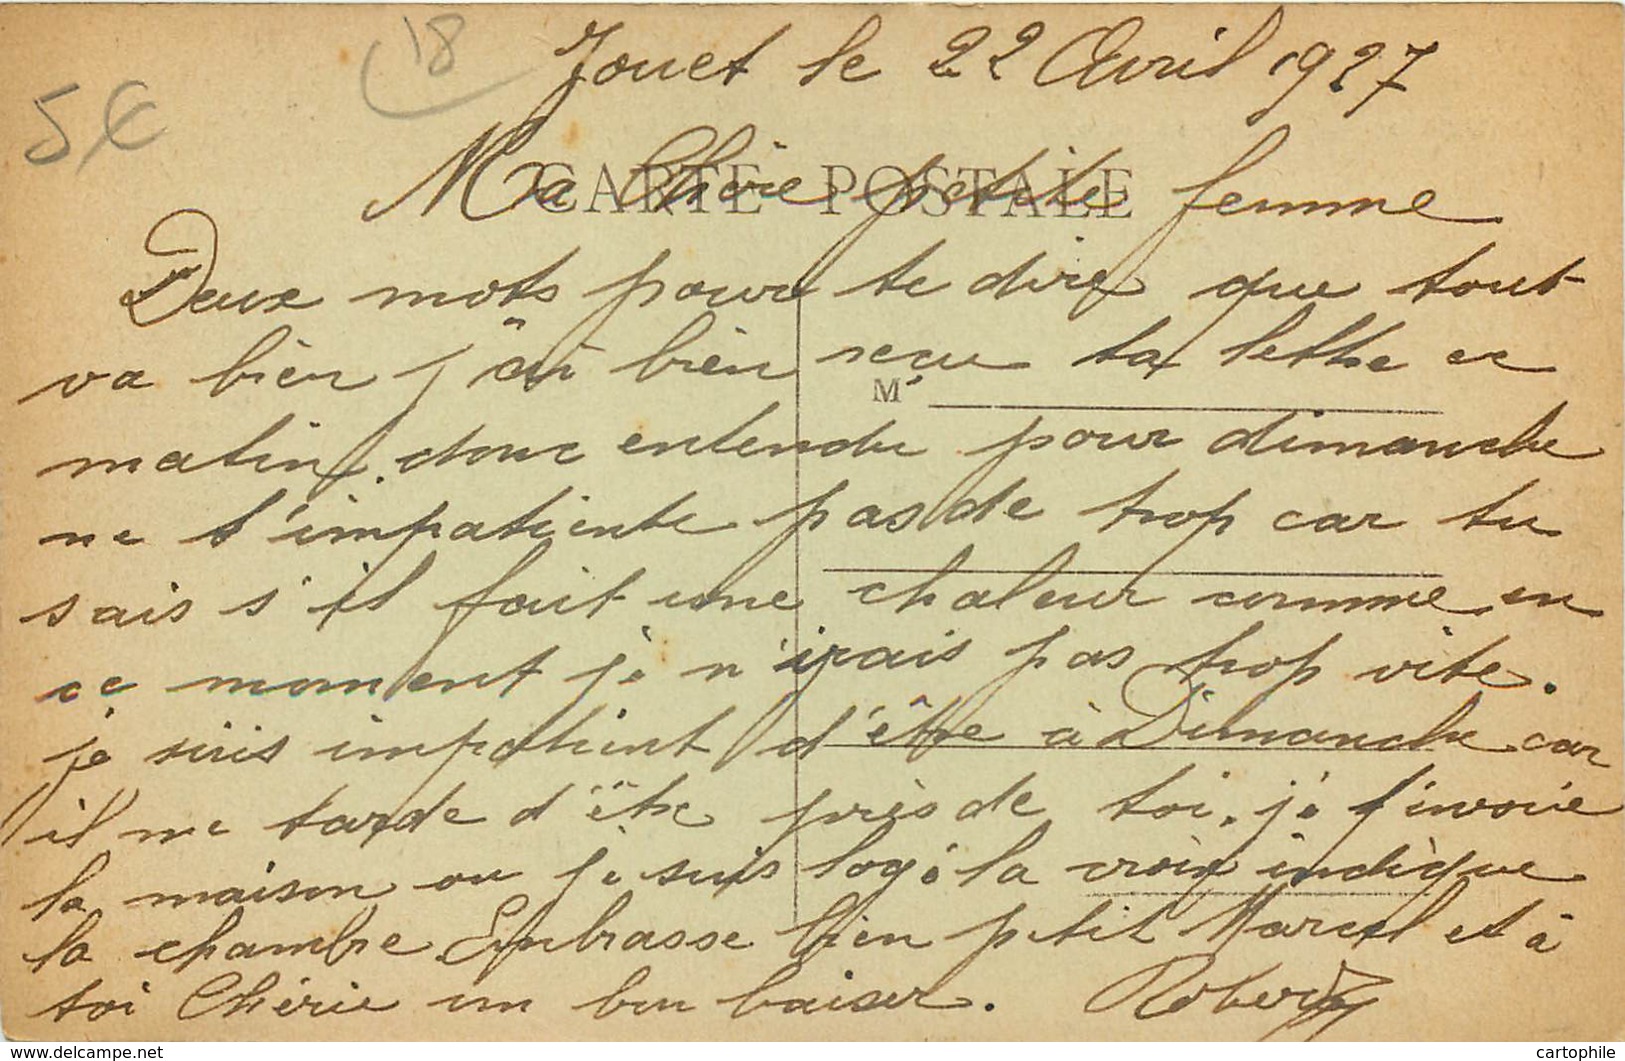 18
5€
Jouet le 22 Avril 1927
CARTE POSTALE
Ma Chérie petite femme
Deux mots pour te dire que tout
va bien j'ai bien reçu ta lettre ce
M
matin, donc entendu pour dimanche
ne t'impatiente pas de trop car tu
sais s'il fait une chaleur comme en
ce moment je n'irais pas trop vite.
je suis impatient d'être à Dimanche car
il me tarde d'être près de toi, je t'envoie
la maison ou je suis logé la croix indique
la chambre Embrasse bien ptit Marcel et à
toi Chérie un bon baiser. Robert
www.delcampe.net
cartophile